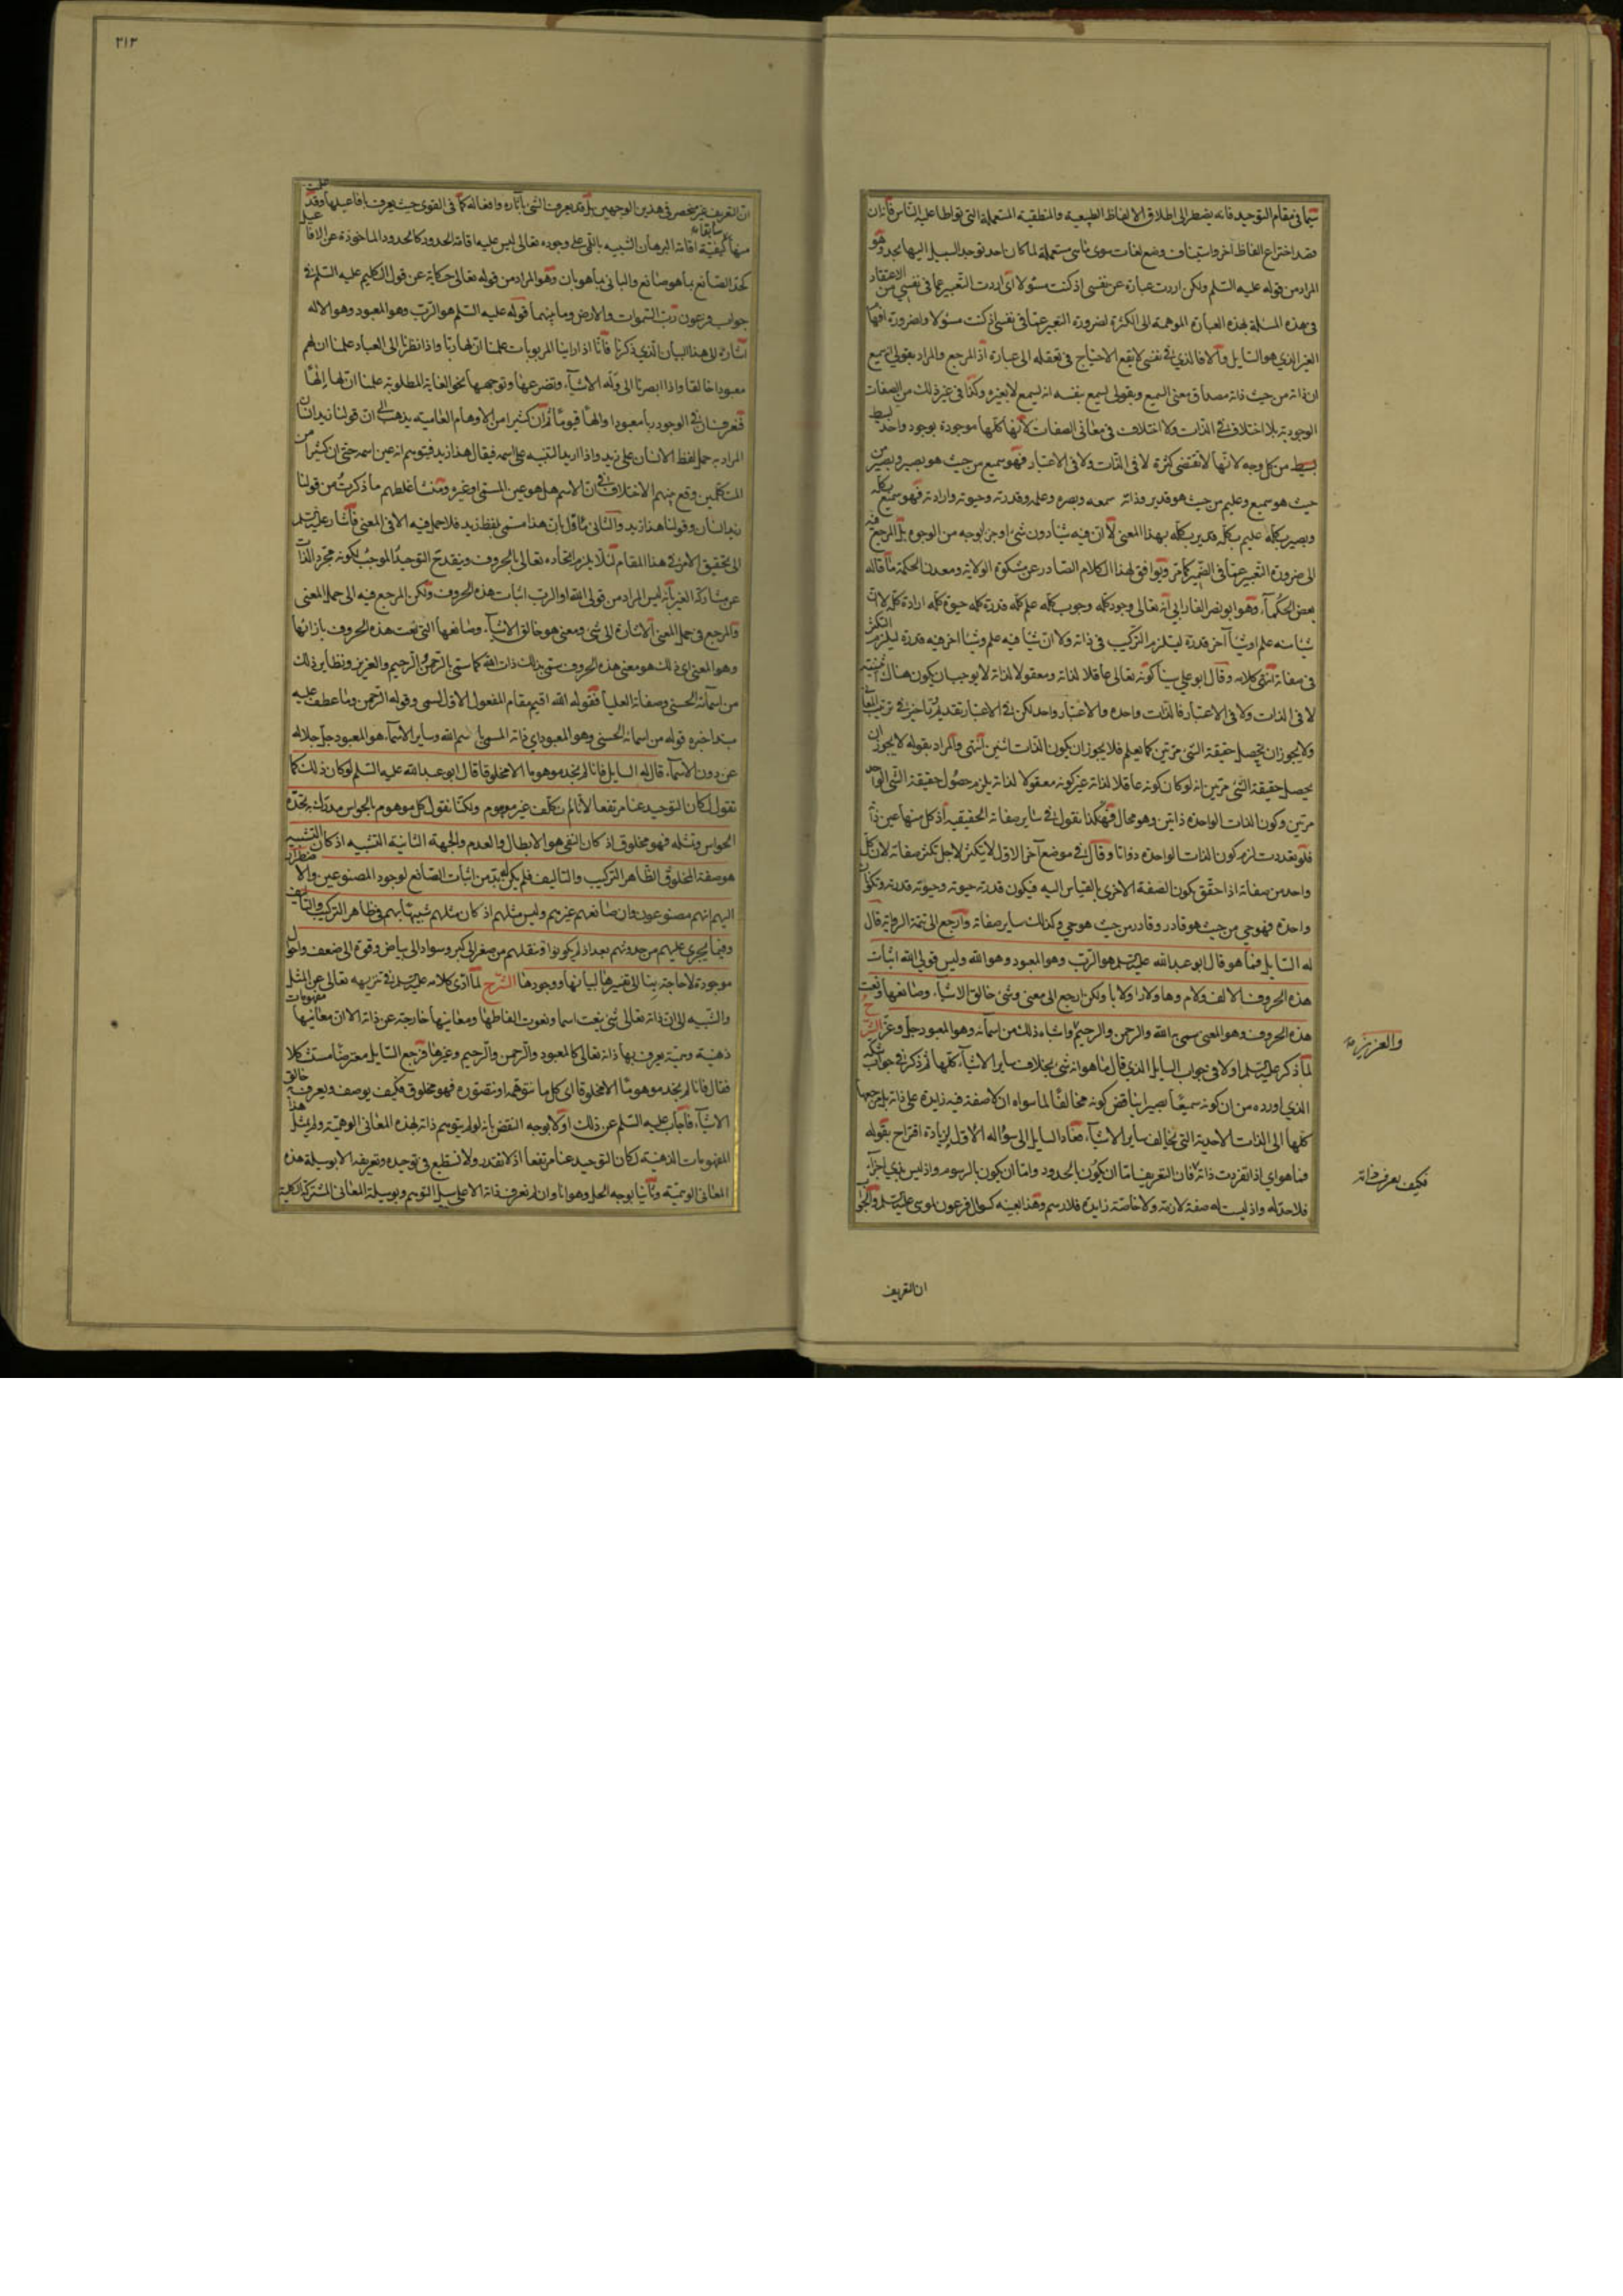 سيما في مقام التوحيد فانه يضطر الى اطلاق الالفاظ الطبيعية والمنطقية المستعملة التي تواطأ عليه الناس فانه ان
قصد اختراع الفاظ آخر واستيناف وضع لغات سوى ما هي مستعملة لما كان احد توجد السبيل اليها بحد وهو
المراد من قوله عليه السلم ولكن اردت عبارة عن نفسي اذ كنت مسئولا اى اردت التعبير عما في نفسي من الاعتقاد
في هذه المسئلة بهذه العبارة الموهمة الى الكثرة لضرورة التعبير عما في نفسي اذ كنت مسئولا ولضرورة افهام
الغير الذي هو السايل والا فالذي في نفسي لا يقع الاحتياج في تعقله الى عبارة اذ المرجع والمراد بقولي انه سميع
ان ذاته من حيث ذاته مصداق معنى السميع وبقولي يسمع بنفسه انه يسمع لا بغيره وكذا في غير ذلك من الصفات
الوجودية بلا اختلاف في الذات ولا اختلاف في معاني الصفات لانها كلها موجودة بوجود واحد بسيط
بسيط من كل وجه لانها لا تقتضى كثرة لا في الذات ولا في الاعتبار فهو سميع من حيث هو بصير وبصير من
حيث هو سميع وعليم من حيث هو قدير وذاته سمعه وبصره وعلمه وقدرته وحيوته وارادته فهو سميع بكله
وبصير بكله عليم بكله قدير بكله بهذا المعنى لا ان فيه شيئا دون شئ او جزا بوجه من الوجوه بل المرجع فيه
الى ضرورة التعبير عما في الضمير كما مر ويوافق لهذا الكلام الصادر عن مشكوة الولاية ومعدن الحكمة ما قاله
بعض الحكماء وهو ابو نصر الفارابي انه تعالى وجود كله وجوب كله علم كله قدرة كله حيوة كله ارادة كله لا ان
شيئا منه علم وشيئا آخر قدرة ليلزم التركيب في ذاته ولا ان شيئا فيه علم وشيئا آخر فيه قدرة ليلزم التكثر
في صفاته انتهى كلامه وقال ابو علي سينا كونه تعالى عاقلا لذاته ومعقولا لذاته لا يوجب ان يكون هناك اثنينية
لا في الذات ولا في الاعتبار فالذات واحدة والاعتبار واحد لكن في الاعتبار تقديم وتاخير في ترتيب المعاني
ولا يجوز ان يحصل حقيقة الشئ مرتين كما يعلم فلا يجوز ان يكون الذات اثنين انتهى والمراد بقوله لا يجوز ان
يحصل حقيقة الشئ مرتين انه لو كان كونه عاقلا لذاته غير كونه معقولا لذاته يلزم حصول حقيقة الشئ الواحد
مرتين وكون الذات الواحدة ذاتين وهو محال فهكذا نقول في ساير صفاته الحقيقيه اذ كل منها عين ذاته
فلو تعددت لزم كون الذات الواحدة ذواتا وقال في موضع آخر الاول لا يتكثر لاجل تكثر صفاته لان كل
واحد من صفاته اذا حقق يكون الصفة الاخرى بالقياس اليه فيكون قدرته حيوته وحيوته قدرته وتكونان
واحدة فهو حي من حيث هو قادر وقادر من حيث هو حي وكذلك ساير صفاته وارجع الى تتمة الرواية قال
له السايل فما هو قال ابو عبد الله عليه السلم هو الرب وهو المعبود وهو الله وليس قولي الله اثبات
هذه الحروف الالف ولام وها ولا را ولا با ولكن ارجع الى معنى وشئ خالق الاشياء وصانعها ونعت
هذه الحروف وهو المعنى سمي به الله والرحمن والرحيم واشباه ذلك من اسمائه وهو المعبود جل وعز الشرح
والعزيز
لما ذكر عليه السلم اولا في جواب السايل الذي قال ما هو انه شئ بخلاف ساير الاشياء كلها ثم ذكر في جواب شكه
الذي اورده من ان كونه سميعا بصيرا يناقض كونه مخالفا لما سواه ان كل صفة فيه زايدة على ذاته بل مرجعها
كلها الى الذات الاحدية التي تخالف ساير الاشياء فعاد السايل الى سؤاله الاول لزيادة اقتراح بقوله
فما هو اى اذا تفردت ذاته فكيف يعرف ذاته فان التعريف اما ان يكون بالحدود واما ان يكون بالرسوم واذ ليس بذي اجزاء
فلا حد له واذ ليست له صفة لازمة ولا خاصة زايدة فلا رسم وهذا بعينه كسؤال فرعون لموسى عليه السلم والجواب
ان التعريف
٣١٣
ان التعريف غير منحصر في هذين الوجهين بل قد يعرف الشئ بآثاره وافعاله كما في القوى حيث يعرف بافاعيلها وقد علمت
سابقا
منها كيفية اقامة البرهان الشبيه باللمي على وجوده تعالى ليس عليه اقامة الحدود كالحدود الماخوذة عن الافاعيل
كحد الصانع بما هو صانع والباني بما هو بان وهو المراد من قوله تعالى حكاية عن قول الكليم عليه السلم في
جواب فرعون رب السموات والارض وما بينهما قوله عليه السلم هو الرب وهو المعبود وهو الاله
اشارة الى هذا البيان الذي ذكرنا فانا اذا راينا المربوبات علمنا ان لها ربا واذا نظرنا الى العباد علمنا ان لهم
معبودا خالقا واذا ابصرنا الى وله الاشياء وتضرعها وتوجهها نحو الغاية المطلوبة علمنا ان لها إلها
فعرفنا ان في الوجود ربا معبودا والها قيوما ثم ان كثيرا من الاوهام العامية يذهب الى ان قولنا زيد انسان
المراد به حمل لفظ الانسان على زيد واذا اريد التنبيه على اسمه فيقال هذا زيد فيتوهم انه عين اسمه حتى ان كثيرا من
المتكلمين وقع بينهم الاختلاف في ان الاسم هل هو عين المسمى او غيره ومنشأ غلطهم ما ذكرت من قولنا
زيد انسان وقولنا هذا زيد والثاني ماؤل بان هذا مسمى بلفظ زيد فلا حمل فيه الا في المعنى فاشار عليه السلم
الى تحقيق الامر في هذا المقام لئلا يلزم اتحاده تعالى بالحروف وينقدح التوحيد الموجب لكونه مجرد الذات
عن مشاركة الغير بانه ليس المراد من قولي الله او الرب اثبات هذه الحروف ولكن المرجع فيه الى حمل المعنى
والمرجع في حمل المعنى الاشارة الى شئ ومعنى هو خالق الاشياء وصانعها التي نعت هذه الحروف بازائها
وهو المعنى اى ذلك هو معنى هذه الحروف سمي بذلك ذات الله كما سمي بالرحمن والرحيم والعزيز ونظاير ذلك
من اسمائه الحسنى وصفاته العليا فقوله الله اقيم مقام المفعول الاول لسمي وقوله الرحمن وما عطف عليه
مبتدا خبره قوله من اسمائه الحسنى وهو المعبود اى ذاته المسمى باسم الله وساير الاسماء هو المعبود جل جلاله
عن دون الاسماء قال له السايل فانا لم نجد موهوما الا مخلوقا قال ابو عبد الله عليه السلم لو كان ذلك كما
تقول لكان التوحيد عنا مرتفعا لانا لم نكلف غير موهوم ولكنا نقول كل موهوم بالحواس مدرك به تحده
الحواس وتمثله فهو مخلوق اذ كان النفي هو الابطال والعدم والجهة الثانية التشبيه اذ كان التشبيه
هو صفة المخلوق الظاهر التركيب والتاليف فلم يكن بد من اثبات الصانع لوجود المصنوعين والاضطرار
اليهم انهم مصنوعون وان صانعهم غيرهم وليس مثلهم اذ كان مثلهم شبيها بهم في ظاهر التركيب والتاليف
وفيما يجرى عليهم من حدوثهم بعد اذ لم يكونوا وتنقلهم من صغر الى كبر وسواد الى بياض وقوة الى ضعف واحوال
موجودة لا حاجة بنا الى تفسيرها لبيانها ووجودها الشرح لما ادى كلامه عليه السلم في تنزيهه تعالى عن المثل
والشبيه الى ان ذاته تعالى شئ ينعت اسما ونعوت الفاظها ومعانيها خارجة عن ذاته الا ان معانيها مفهومات
ذهنية وهمية يعرف بها ذاته تعالى كالمعبود والرحمن والرحيم وغيرها فرجع السايل معترضا مستشكلا
فقال فانا لم نجد موهوما الا مخلوقا اى كل ما نتوهمه او نتصوره فهو مخلوق فكيف يوصف ويعرف به خالق
الاشياء فاجاب عليه السلم عن ذلك اولا بوجه النقض بانه لو لم يتوهم ذاته بهذه المعاني الوهمية ولم يمثل هذا
المفهومات الذهنية لكان التوحيد عنا مرتفعا اذ لا نقدر ولا نستطيع في توحيده وتعريفه الا بوسيلة هذه
المعاني الوهمية وثانيا بوجه الحل وهو انا وان لم نعرف ذاته الا على سبيل التوهم وبوسيلة المعاني المشتركة الكلية